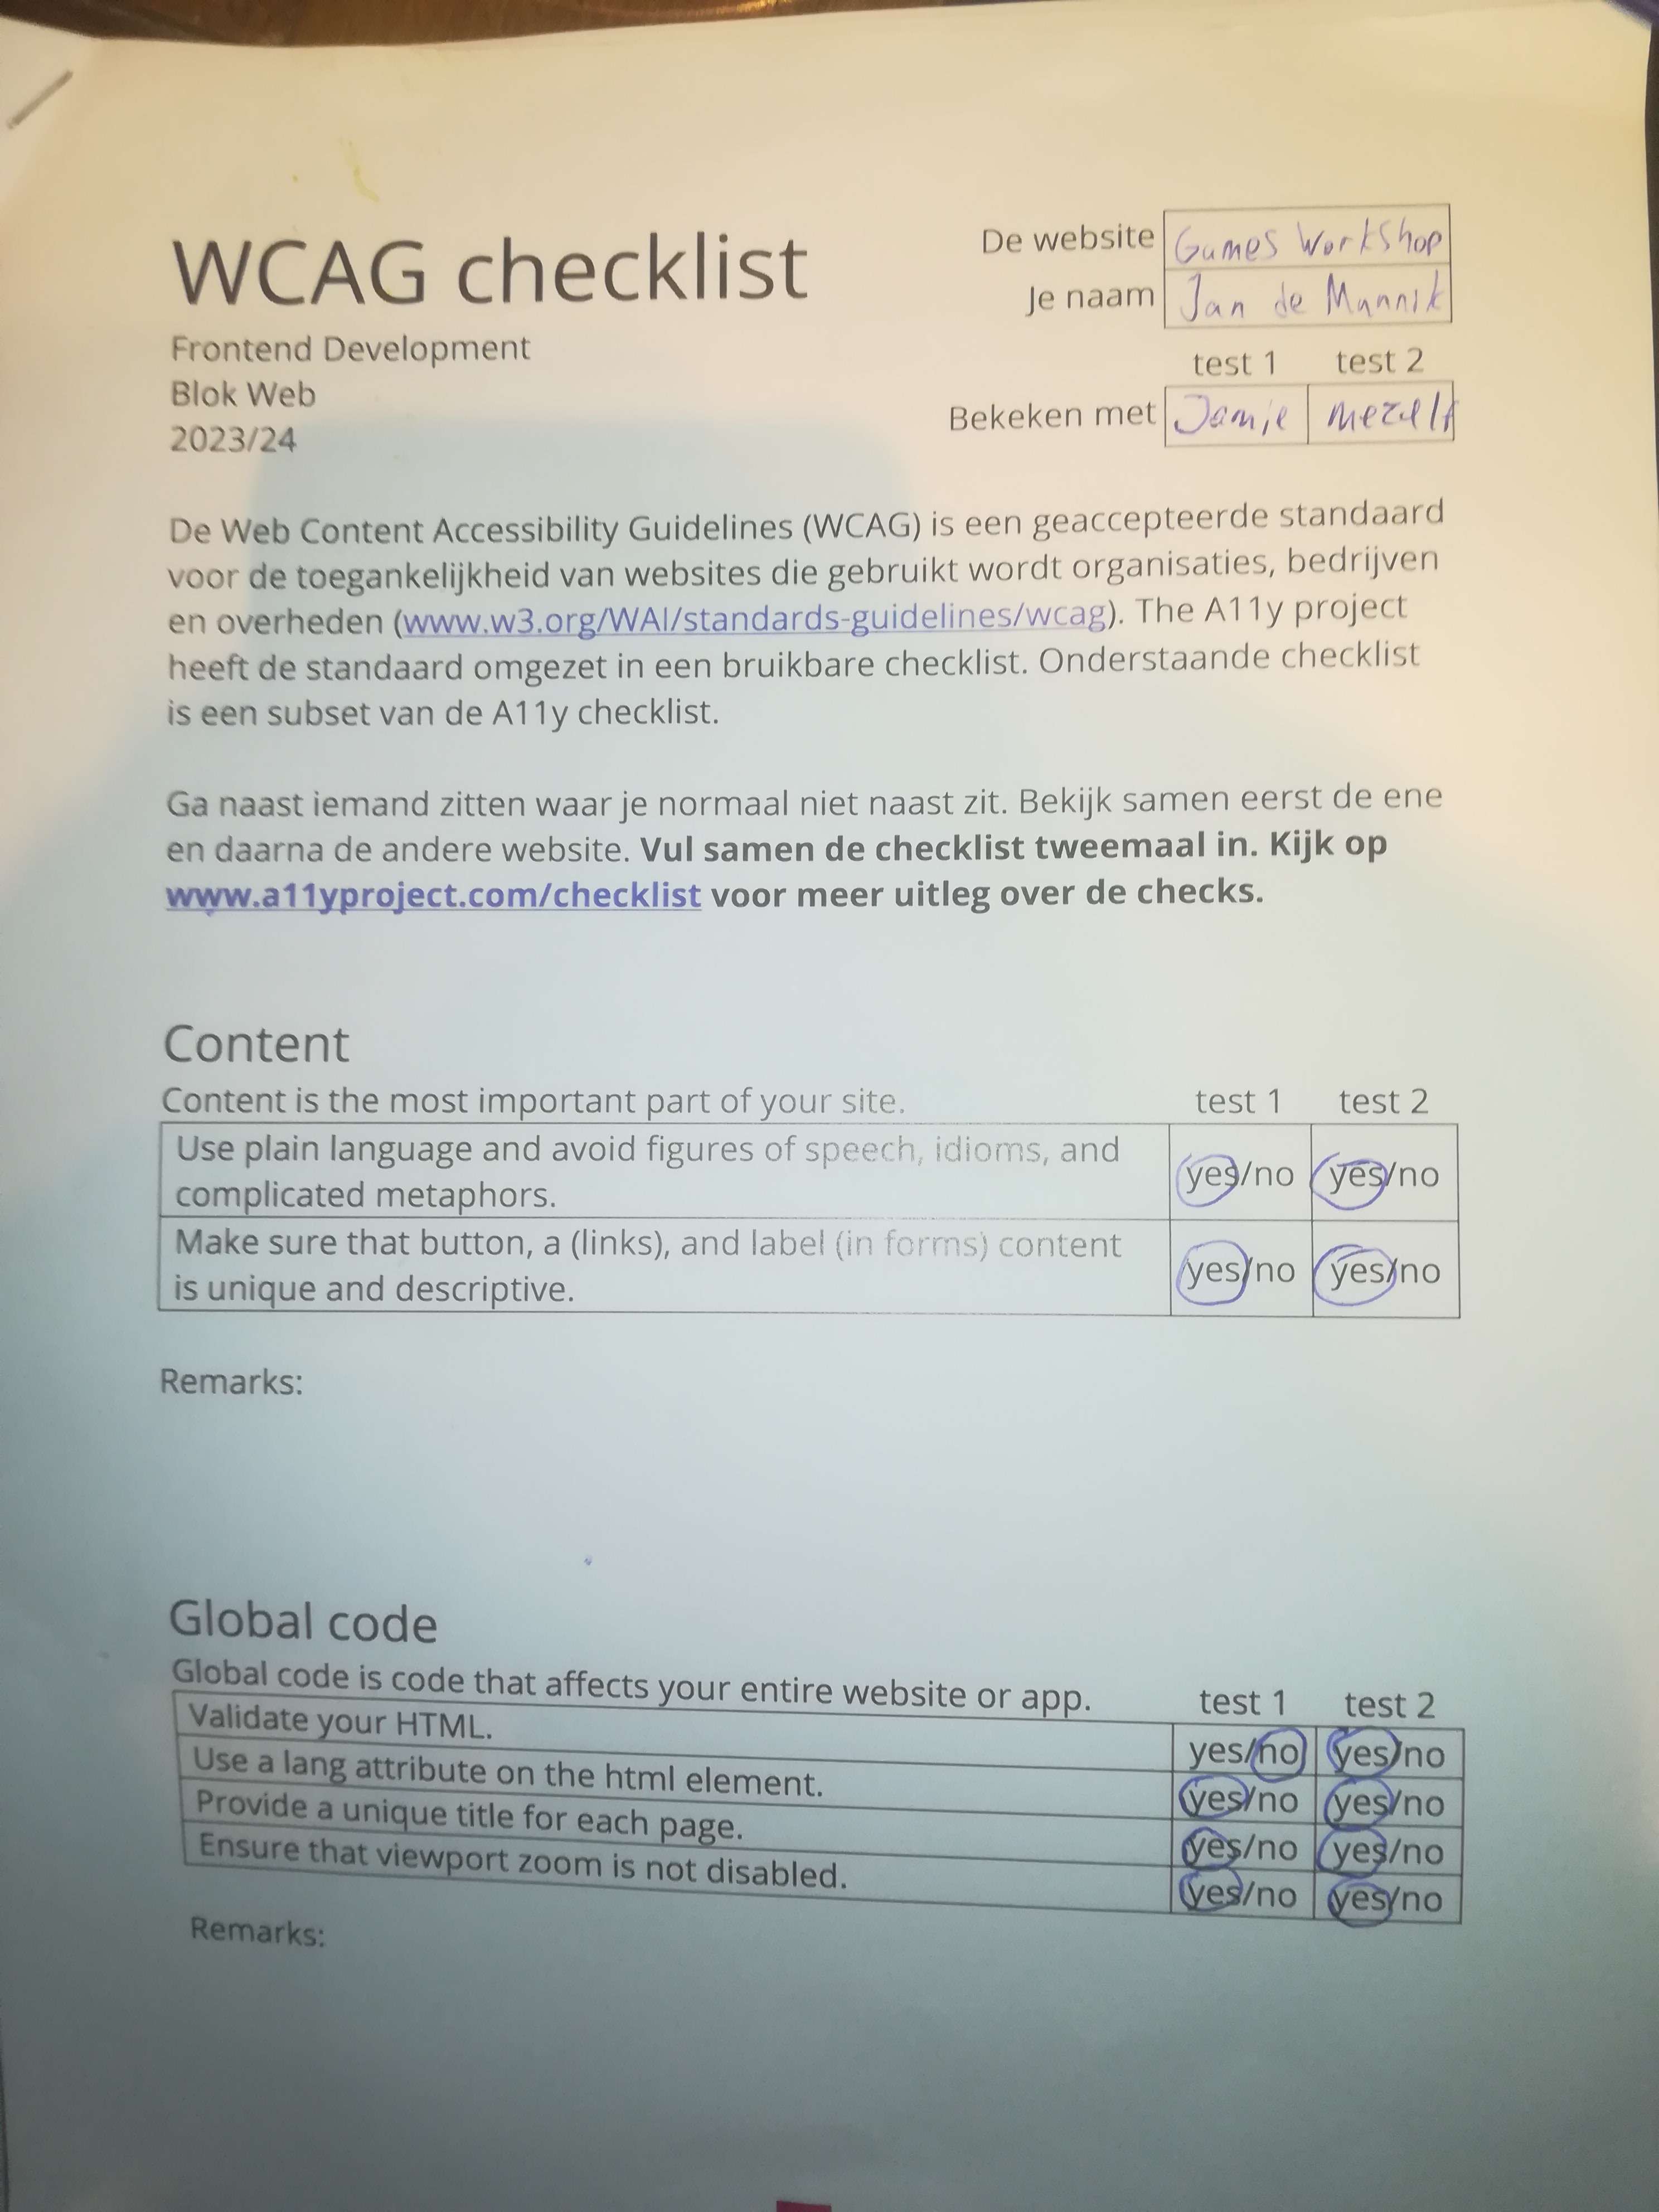 WCAG checklist
Frontend Development
Blok Web
2023/24
De website Games Workshop
Je naam Jan de Mannik
test 1 test 2
Bekeken met Jamie mezelf
De Web Content Accessibility Guidelines (WCAG) is een geaccepteerde standaard
voor de toegankelijkheid van websites die gebruikt wordt organisaties, bedrijven
en overheden (www.w3.org/WAI/standards-guidelines/wcag). The A11y project
heeft de standaard omgezet in een bruikbare checklist. Onderstaande checklist
is een subset van de A11y checklist.
Ga naast iemand zitten waar je normaal niet naast zit. Bekijk samen eerst de ene
en daarna de andere website. Vul samen de checklist tweemaal in. Kijk op
www.a11yproject.com/checklist voor meer uitleg over de checks.
Content
Content is the most important part of your site. test 1 test 2
Use plain language and avoid figures of speech, idioms, and
complicated metaphors. yes/no yes/no
Make sure that button, a (links), and label (in forms) content
is unique and descriptive. yes/no yes/no
Remarks:
Global code
Global code is code that affects your entire website or app. test 1 test 2
Validate your HTML. yes/no yes/no
Use a lang attribute on the html element. yes/no yes/no
Provide a unique title for each page. yes/no yes/no
Ensure that viewport zoom is not disabled. yes/no yes/no
Remarks: